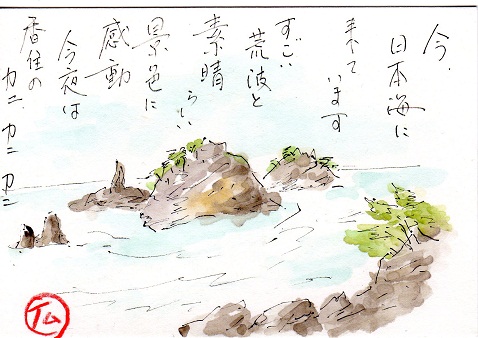 今、
日本海に
来て
います
すごい
荒波と
素晴
らしい
景色に
感動
今夜は
香住の
カニ、カニ カニ
仏